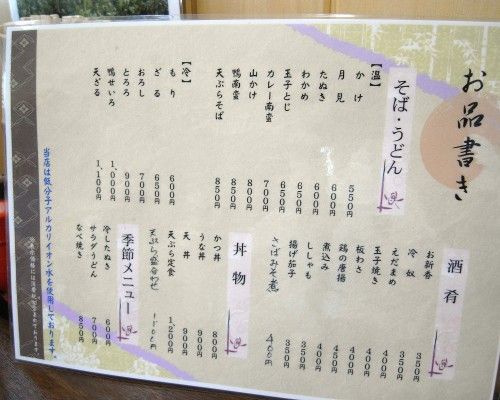 お品書き
そば・うどん
【温】
かけ 550円
月見 600円
たぬき 600円
わかめ 650円
玉子とじ 650円
カレー南蛮 700円
山かけ
鴨南蛮 850円
天ぷらそば 850円
【冷】
もり 600円
ざる 650円
おろし 700円
とろろ 900円
鴨せいろ 1,000円
天ざる 1,100円
酒肴
お新香 350円
冷奴 350円
えだまめ 400円
玉子焼き 400円
板わさ 400円
鶏の唐揚 450円
煮込み 400円
ししゃも 350円
揚げ茄子 350円
さばみそ煮 400円
丼物
かつ丼 800円
うな丼 900円
天丼 900円
天ぷら定食 1,200円
天ぷら盛合わせ 1100円
季節メニュー
冷したぬき 600円
サラダうどん 700円
なべ焼き 850円
当店は低分子アルカリイオン水を使用しております。